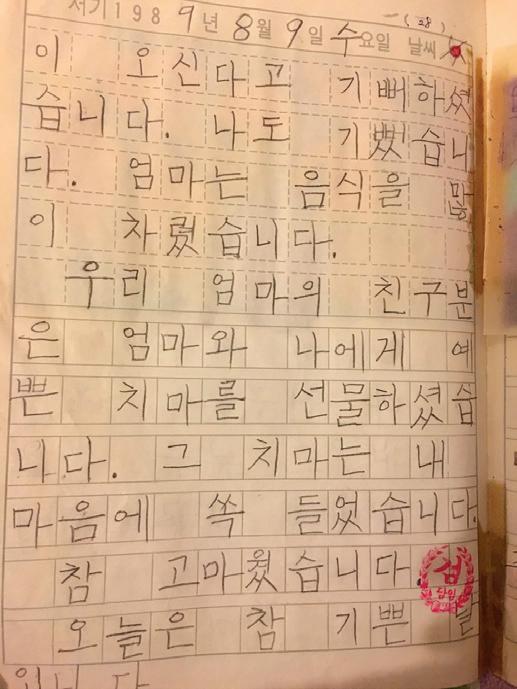 (28)
서기 1989년 8월 9일 수요일 날씨
이 오신다고 기뻐하셨
습니다. 나도 기뻤습니
다. 엄마는 음식을 많
이 차렸습니다.
우리 엄마의 친구분
은 엄마와 나에게 예
쁜 치마를 선물하셨습
니다. 그 치마는 내
마음에 쏙 들었습니다.
참 고마웠습니다.
담임
오늘은 참 기쁜 날
입니다